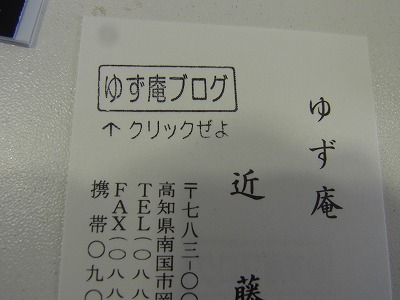 ゆず庵ブログ
↑クリックぜよ
ゆず庵
近藤
〒七八三-〇
高知県南国市岡
TEL(〇八八
FAX(〇八八
携帯〇九〇